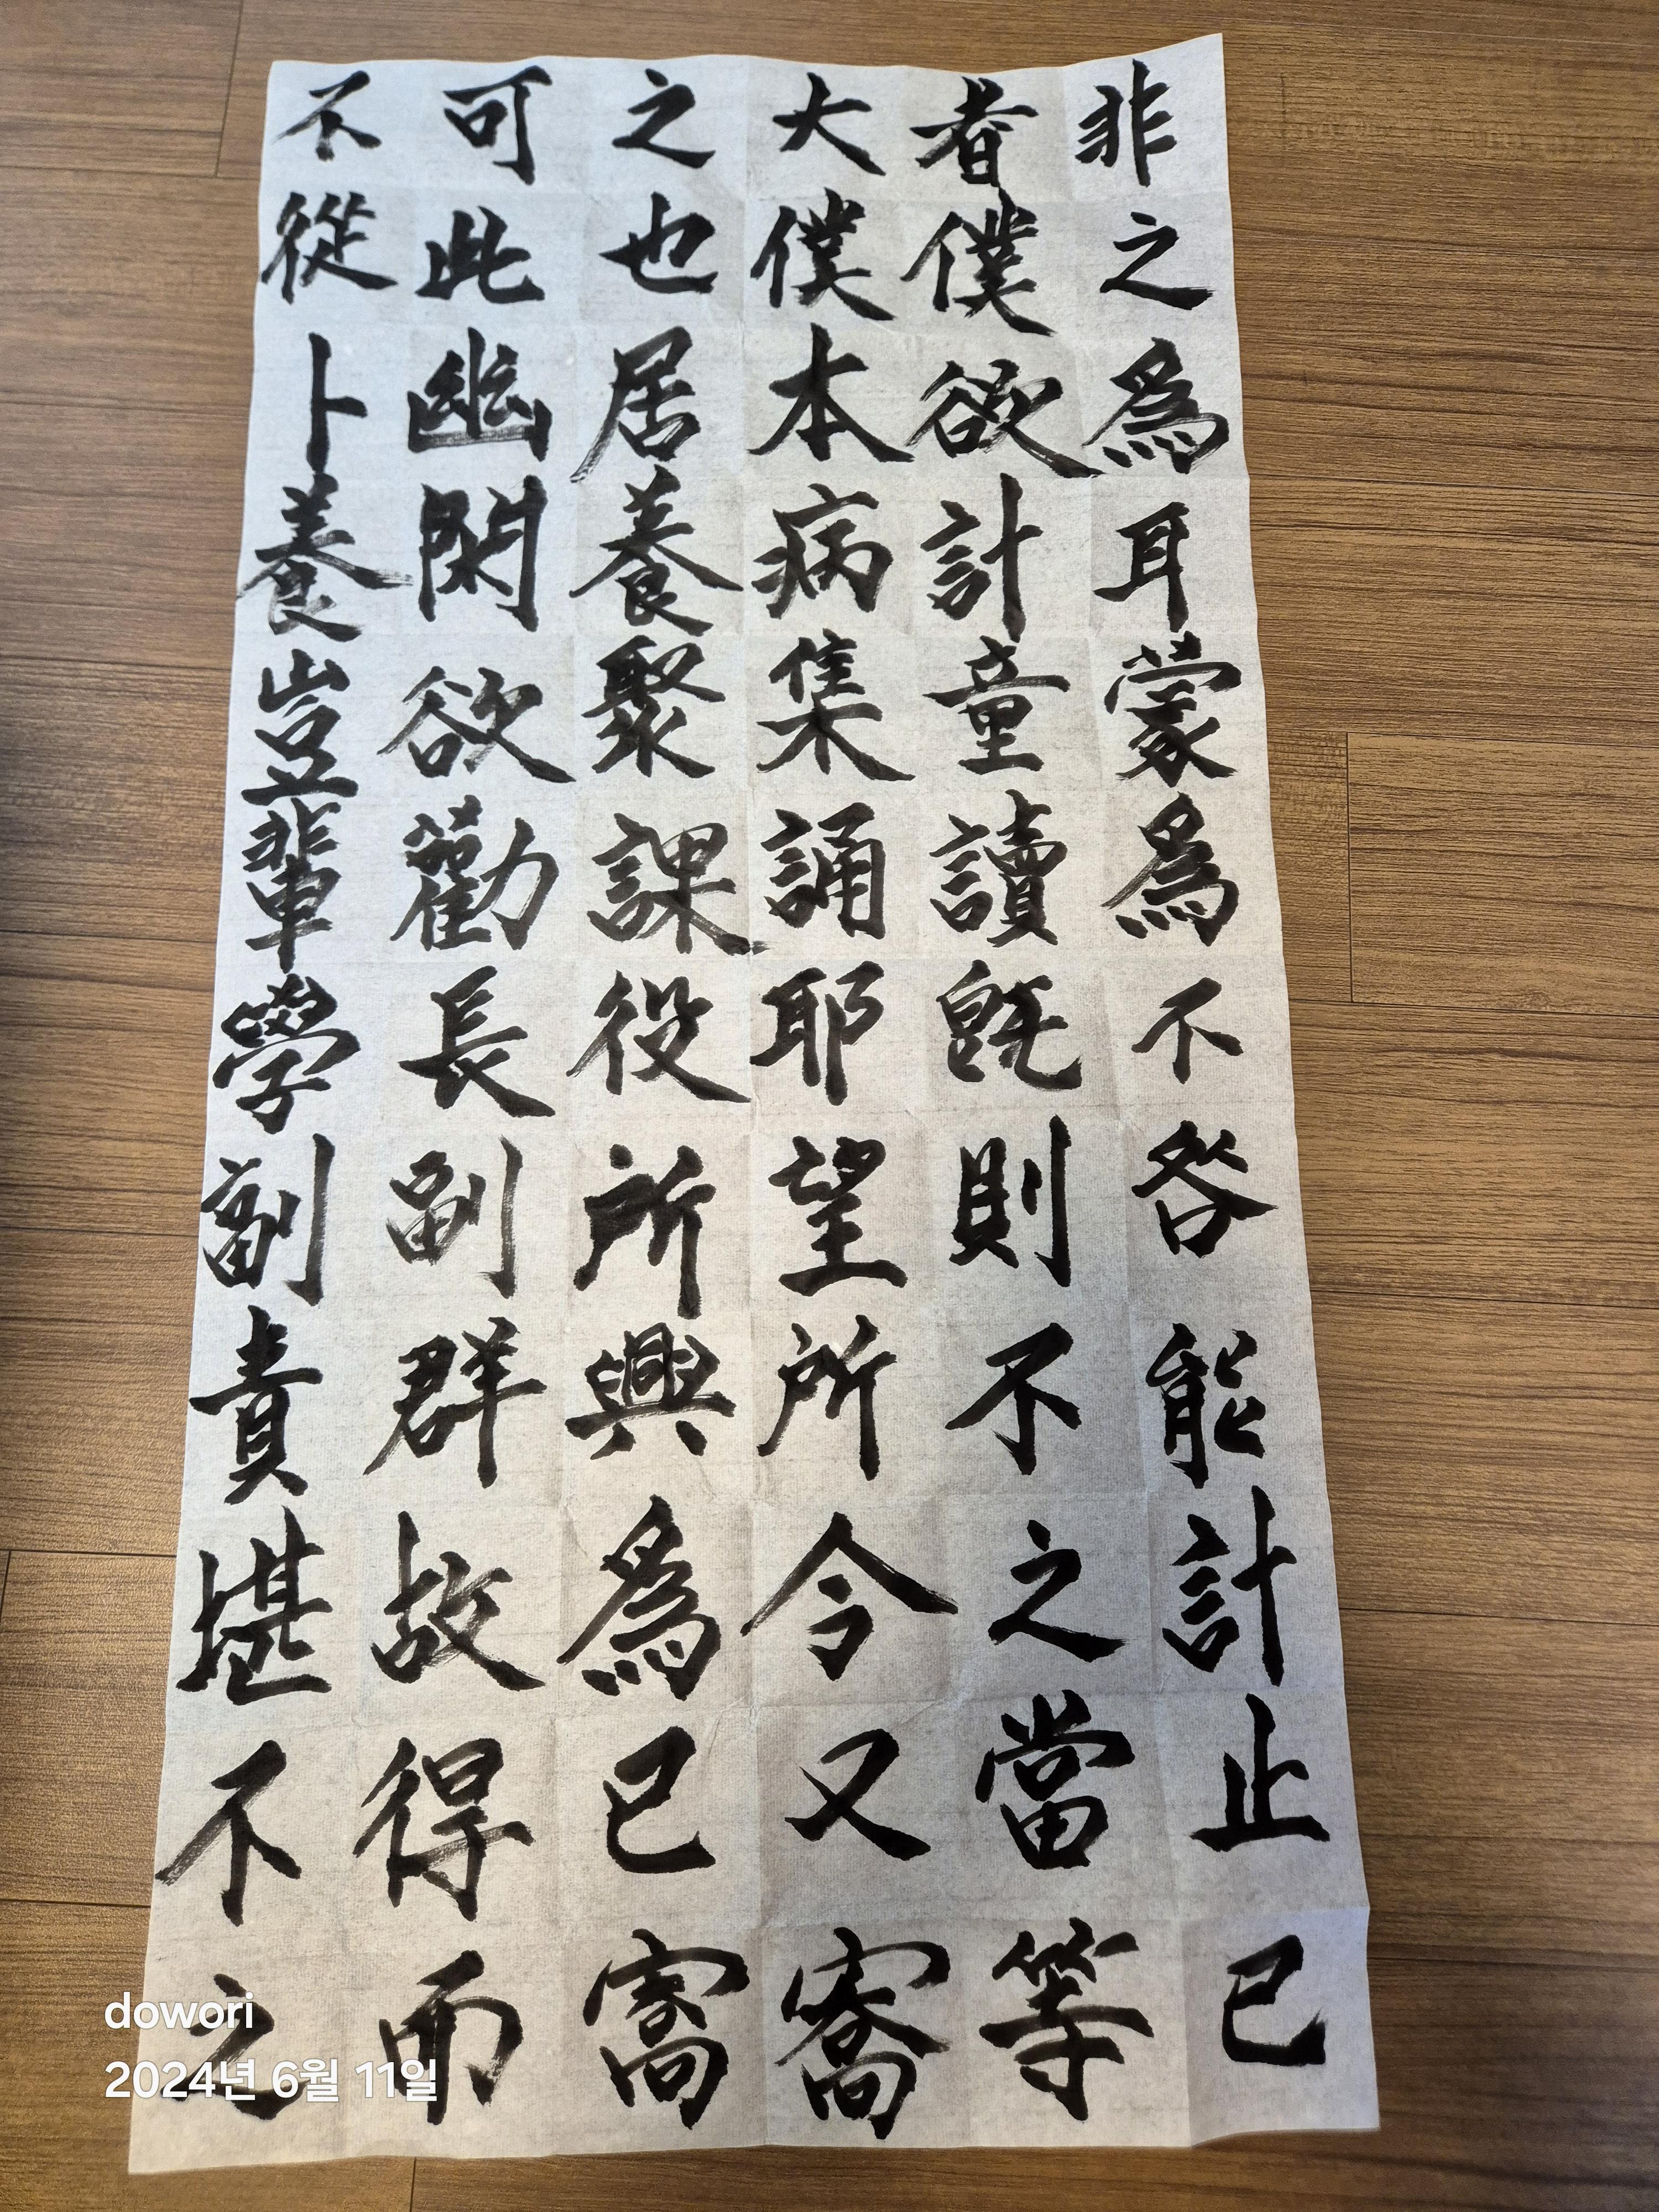 非之爲耳蒙爲不咎能計止已
者僕欲計童讀旣則不之當等
大僕本病集誦耶望所今又
之也居養聚課役所興爲已
可此幽閑欲勸長副群故得而
不從卜養豈輩學副責堪不之
dowori
2024년 6월 11일